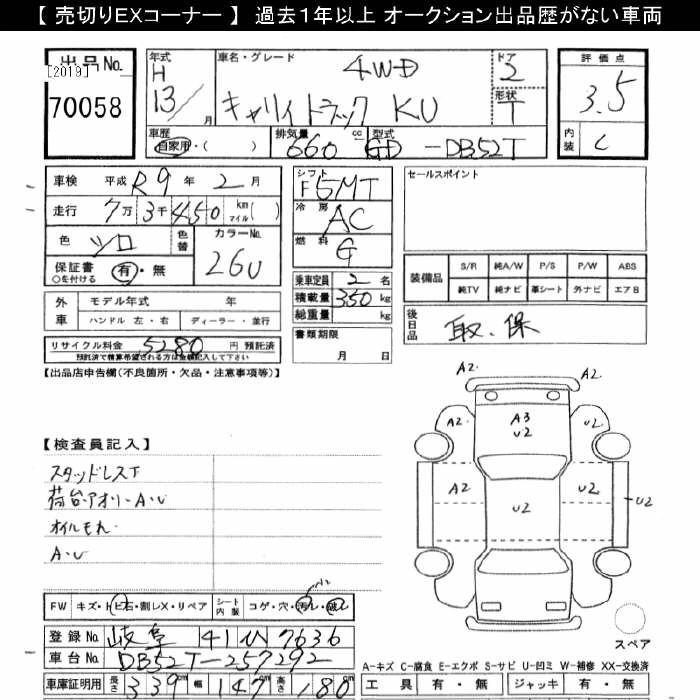 【 売切りEXコーナー 】 過去1年以上 オークション出品歴がない車両
出品No.
[2019]
70058
年式
H
13/
月
車名・グレード
4WD
キャリィトラック KU
ドア
2
形状
T
評価点
3.5
内装
C
車歴
自家用・( )
排気量
660 cc
型式
GD -DB52T
車検 平成 R9 年 2 月
走行 7万 3千 450 km マイル ( )
色
シロ
色替
カラーNo.
26U
保証書
○を付ける
有・無
シフト
F5MT
冷房
AC
燃料
G
乗車定員 2 名
積載量 350 kg
総重量 kg
書類期限
月 日
セールスポイント
装備品
S/R 純A/W P/S P/W ABS
純TV 純ナビ 革シート 外ナビ エアB
後日品
取.保
外車
モデル年式 年
ハンドル 左・右 ディーラー・並行
リサイクル料金 5280 円 預託済
預託済で精算希望される方は金額記入して下さい
【出品店申告欄(不良箇所・欠品・注意事項等)】
【検査員記入】
スタッドレスT
荷台.アオリ-A.U
オイルもれ.
A.U
A2 A2
A2 A3 A2
U2
A2 U2 U2 U2
FW キズ・トビ石・割レX・リペア シート内装 コゲ・穴・汚レ・破レ
登録No. 岐阜 41 い 7636
車台No. DB52T-257292
車庫証明用 長さ 339 幅 147 高さ 180 cm
スペア
A-キズ C-腐食 E-エクボ S-サビ U-凹ミ W-補修 XX-交換済
工具 有・無 ジャッキ 有・無